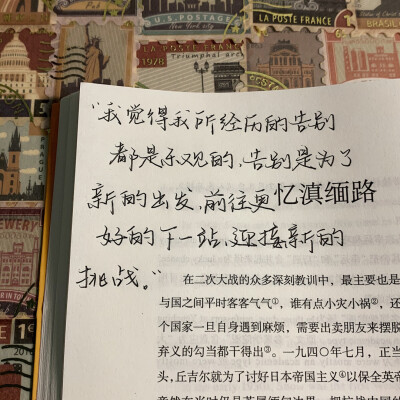 U.S. POSTAGE
LA POSTE FRANCE
LA POSTE FRANCE
1978
Triumphal arc
BRASIL
“我觉得我所经历的告别
都是乐观的，告别是为了
新的出发，前往更
忆滇缅路
好的下一站，迎接新的
挑战。”
在二次大战的众多深刻教训中，最主要也是
与国之间平时客客气气①，谁有点小灾小祸②，还
个国家一旦自身遇到麻烦，需要出卖朋友来摆脱
弃义的勾当都干得出③。一九四〇年七月，正当
头，丘吉尔就为了讨好日本帝国主义④以保全英